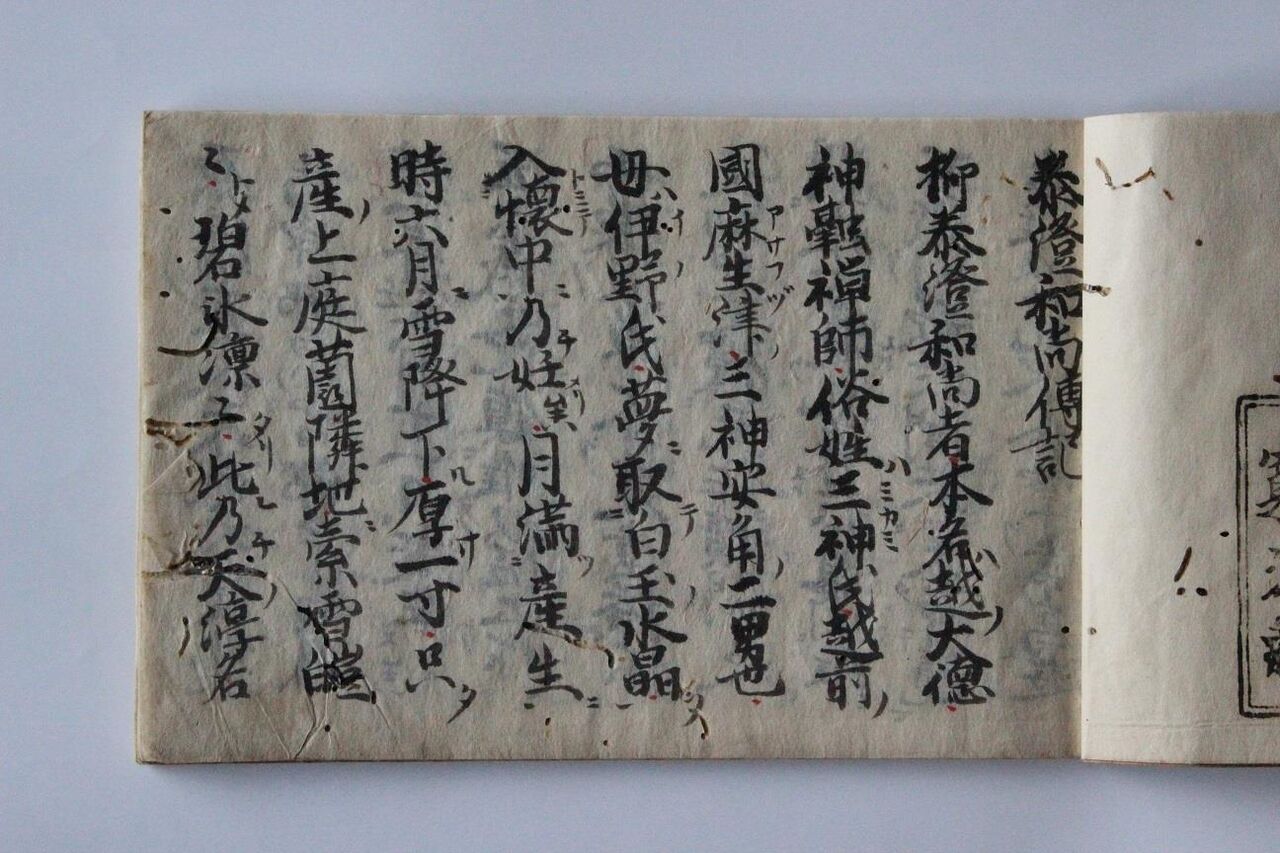 泰澄和尚傳記
抑泰澄和尚者本名越大德
神融禪師俗姓三神氏越前
國麻生津三神安角二男也
母伊野氏夢取白玉水晶
入懷中乃妊月滿産生
時六月雪降下厚一寸只
産上庭薗隣地索雪皚
〻碧氷凛〻此乃天渟名